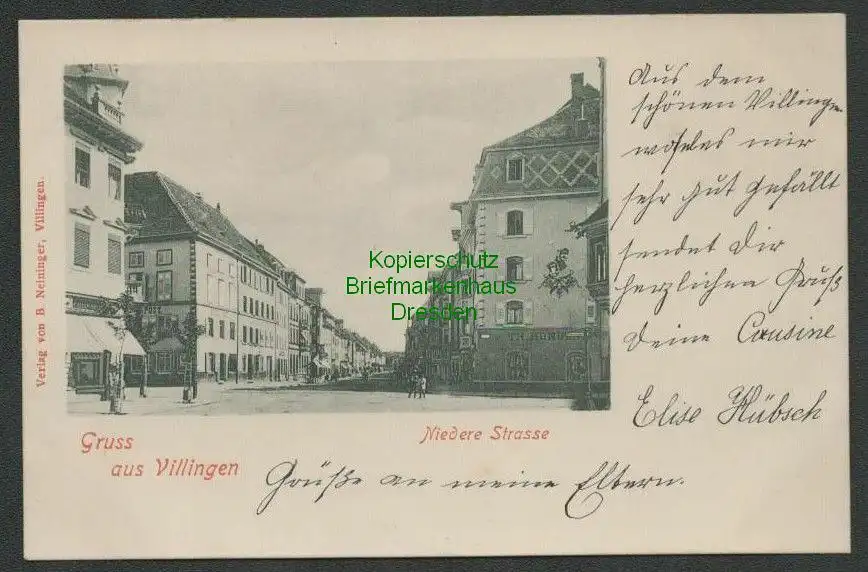 Verlag von B. Neininger, Villingen.
POST
Kopierschutz
Briefmarkenhaus
Dresden
Gruss
aus Villingen
Niedere Strasse
Aus dem
schönen Villingen
welches mir
sehr gut gefällt
sendet Dir
herzlichen Gruß
Deine Cousine
Elise Hübsch
Grüße an meine Eltern.